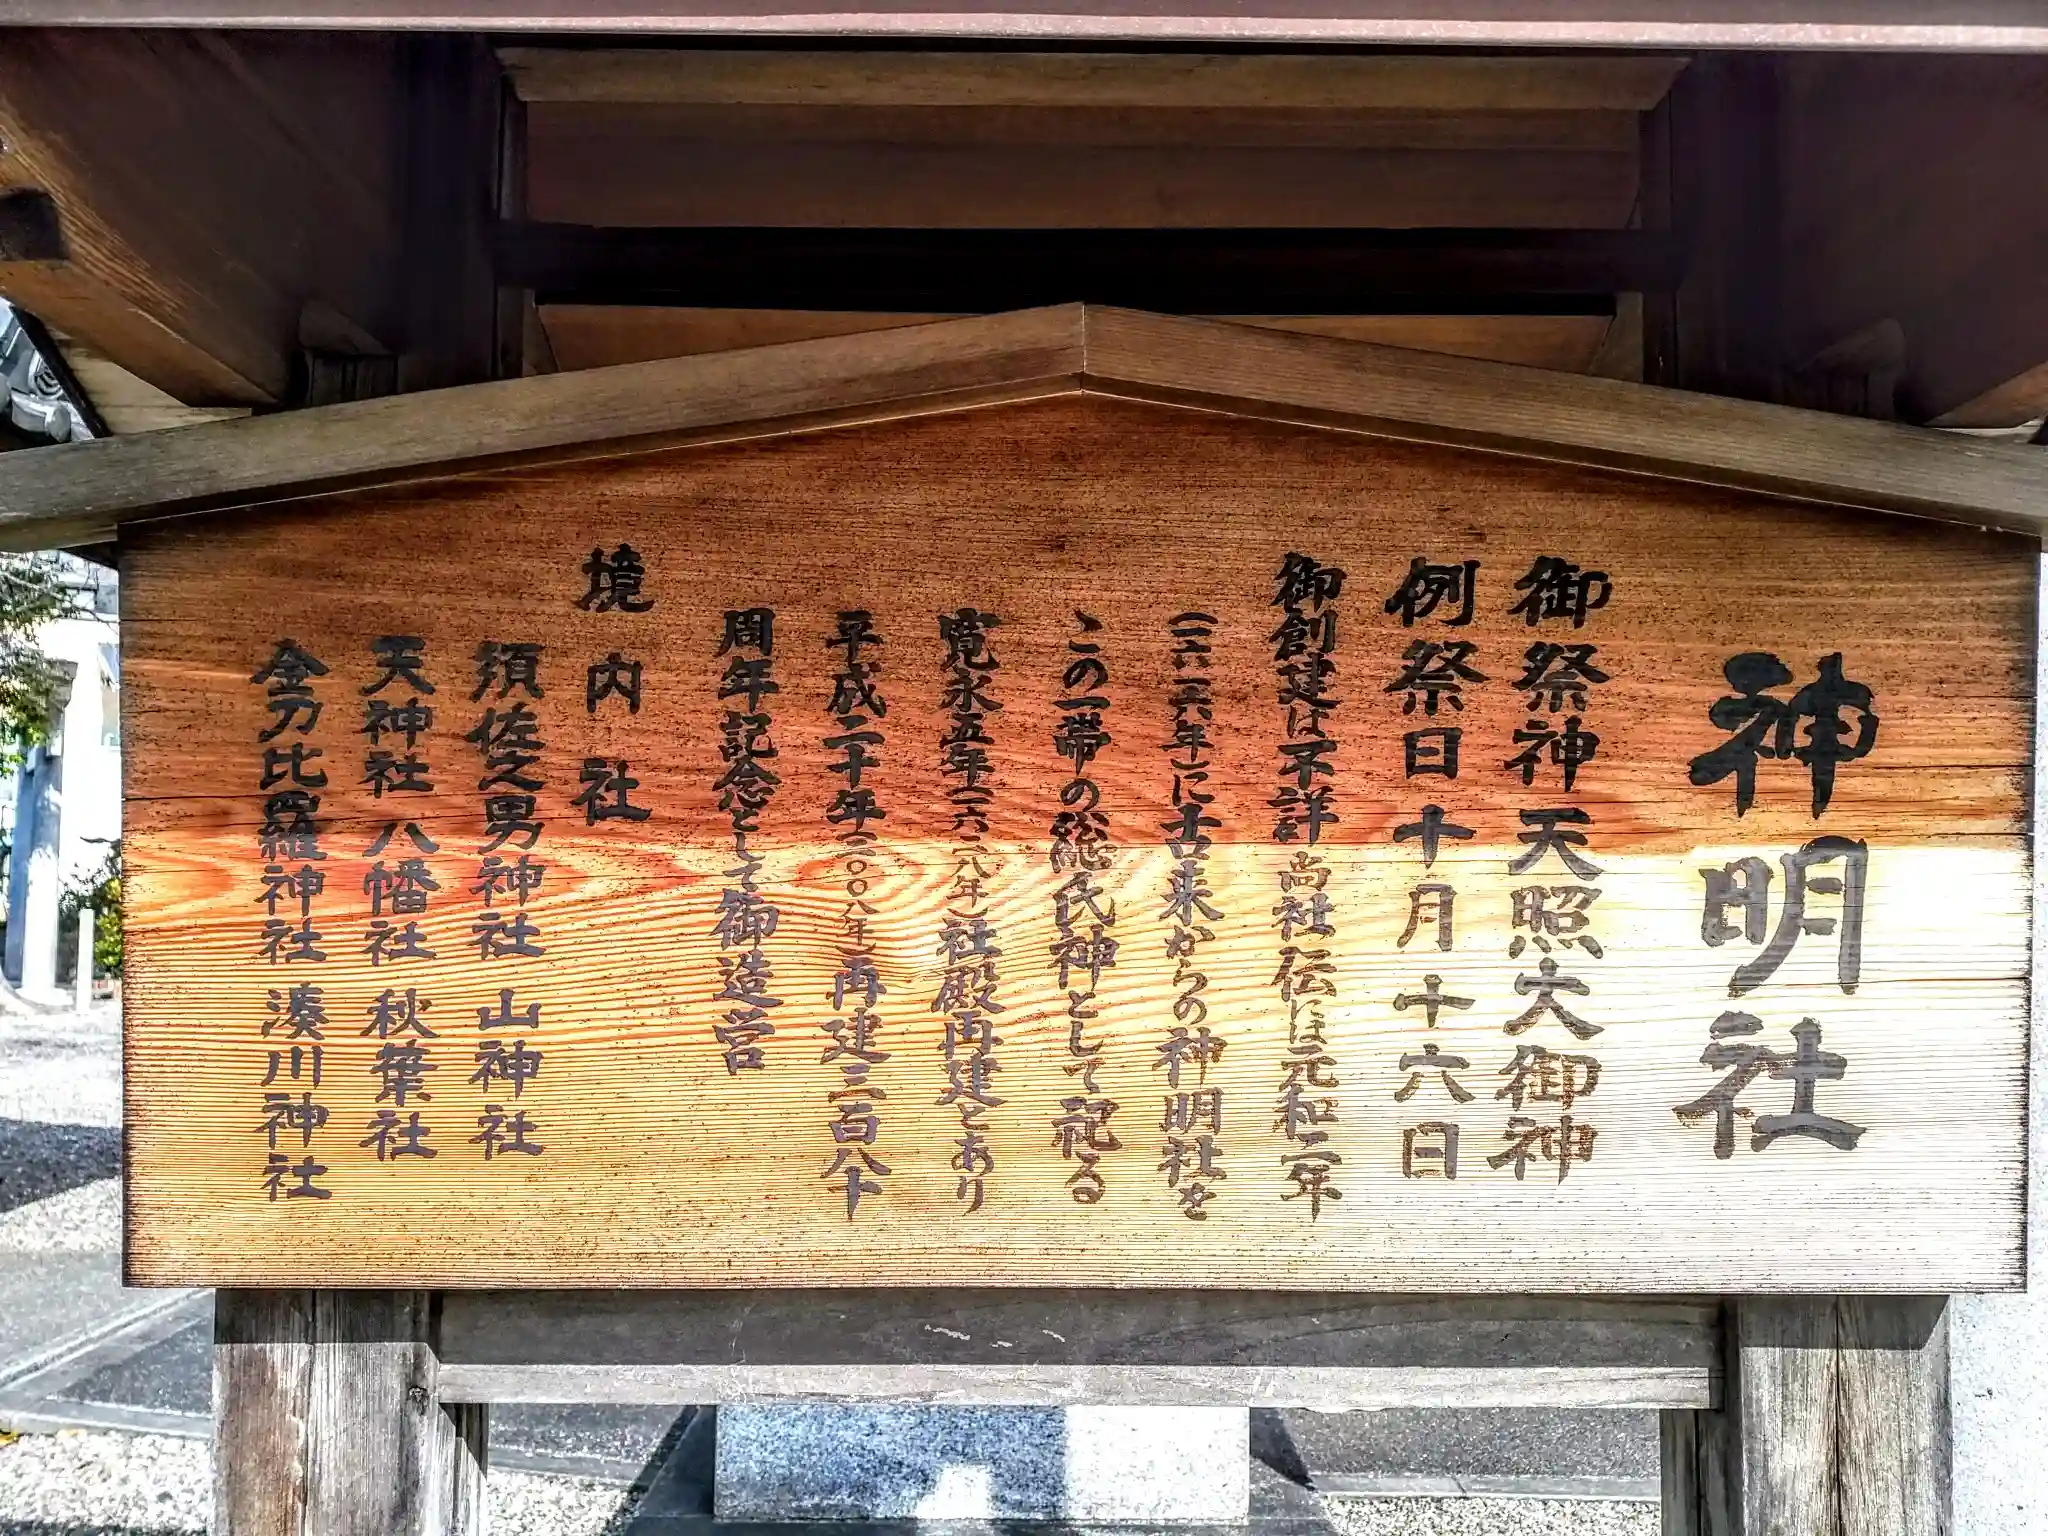 神明社
御祭神 天照大御神
例祭日 十月十六日
御創建は不詳 尚社伝には元和二年
(一六一六年)に古来からの神明社を
この一帯の総氏神として祀る
寛永五年(一六二八年)社殿再建とあり
平成二十年(二〇〇八年)再建三百八十
周年記念として御造営
境内社
須佐之男神社 山神社
天神社 八幡社 秋葉社
金刀比羅神社 湊川神社